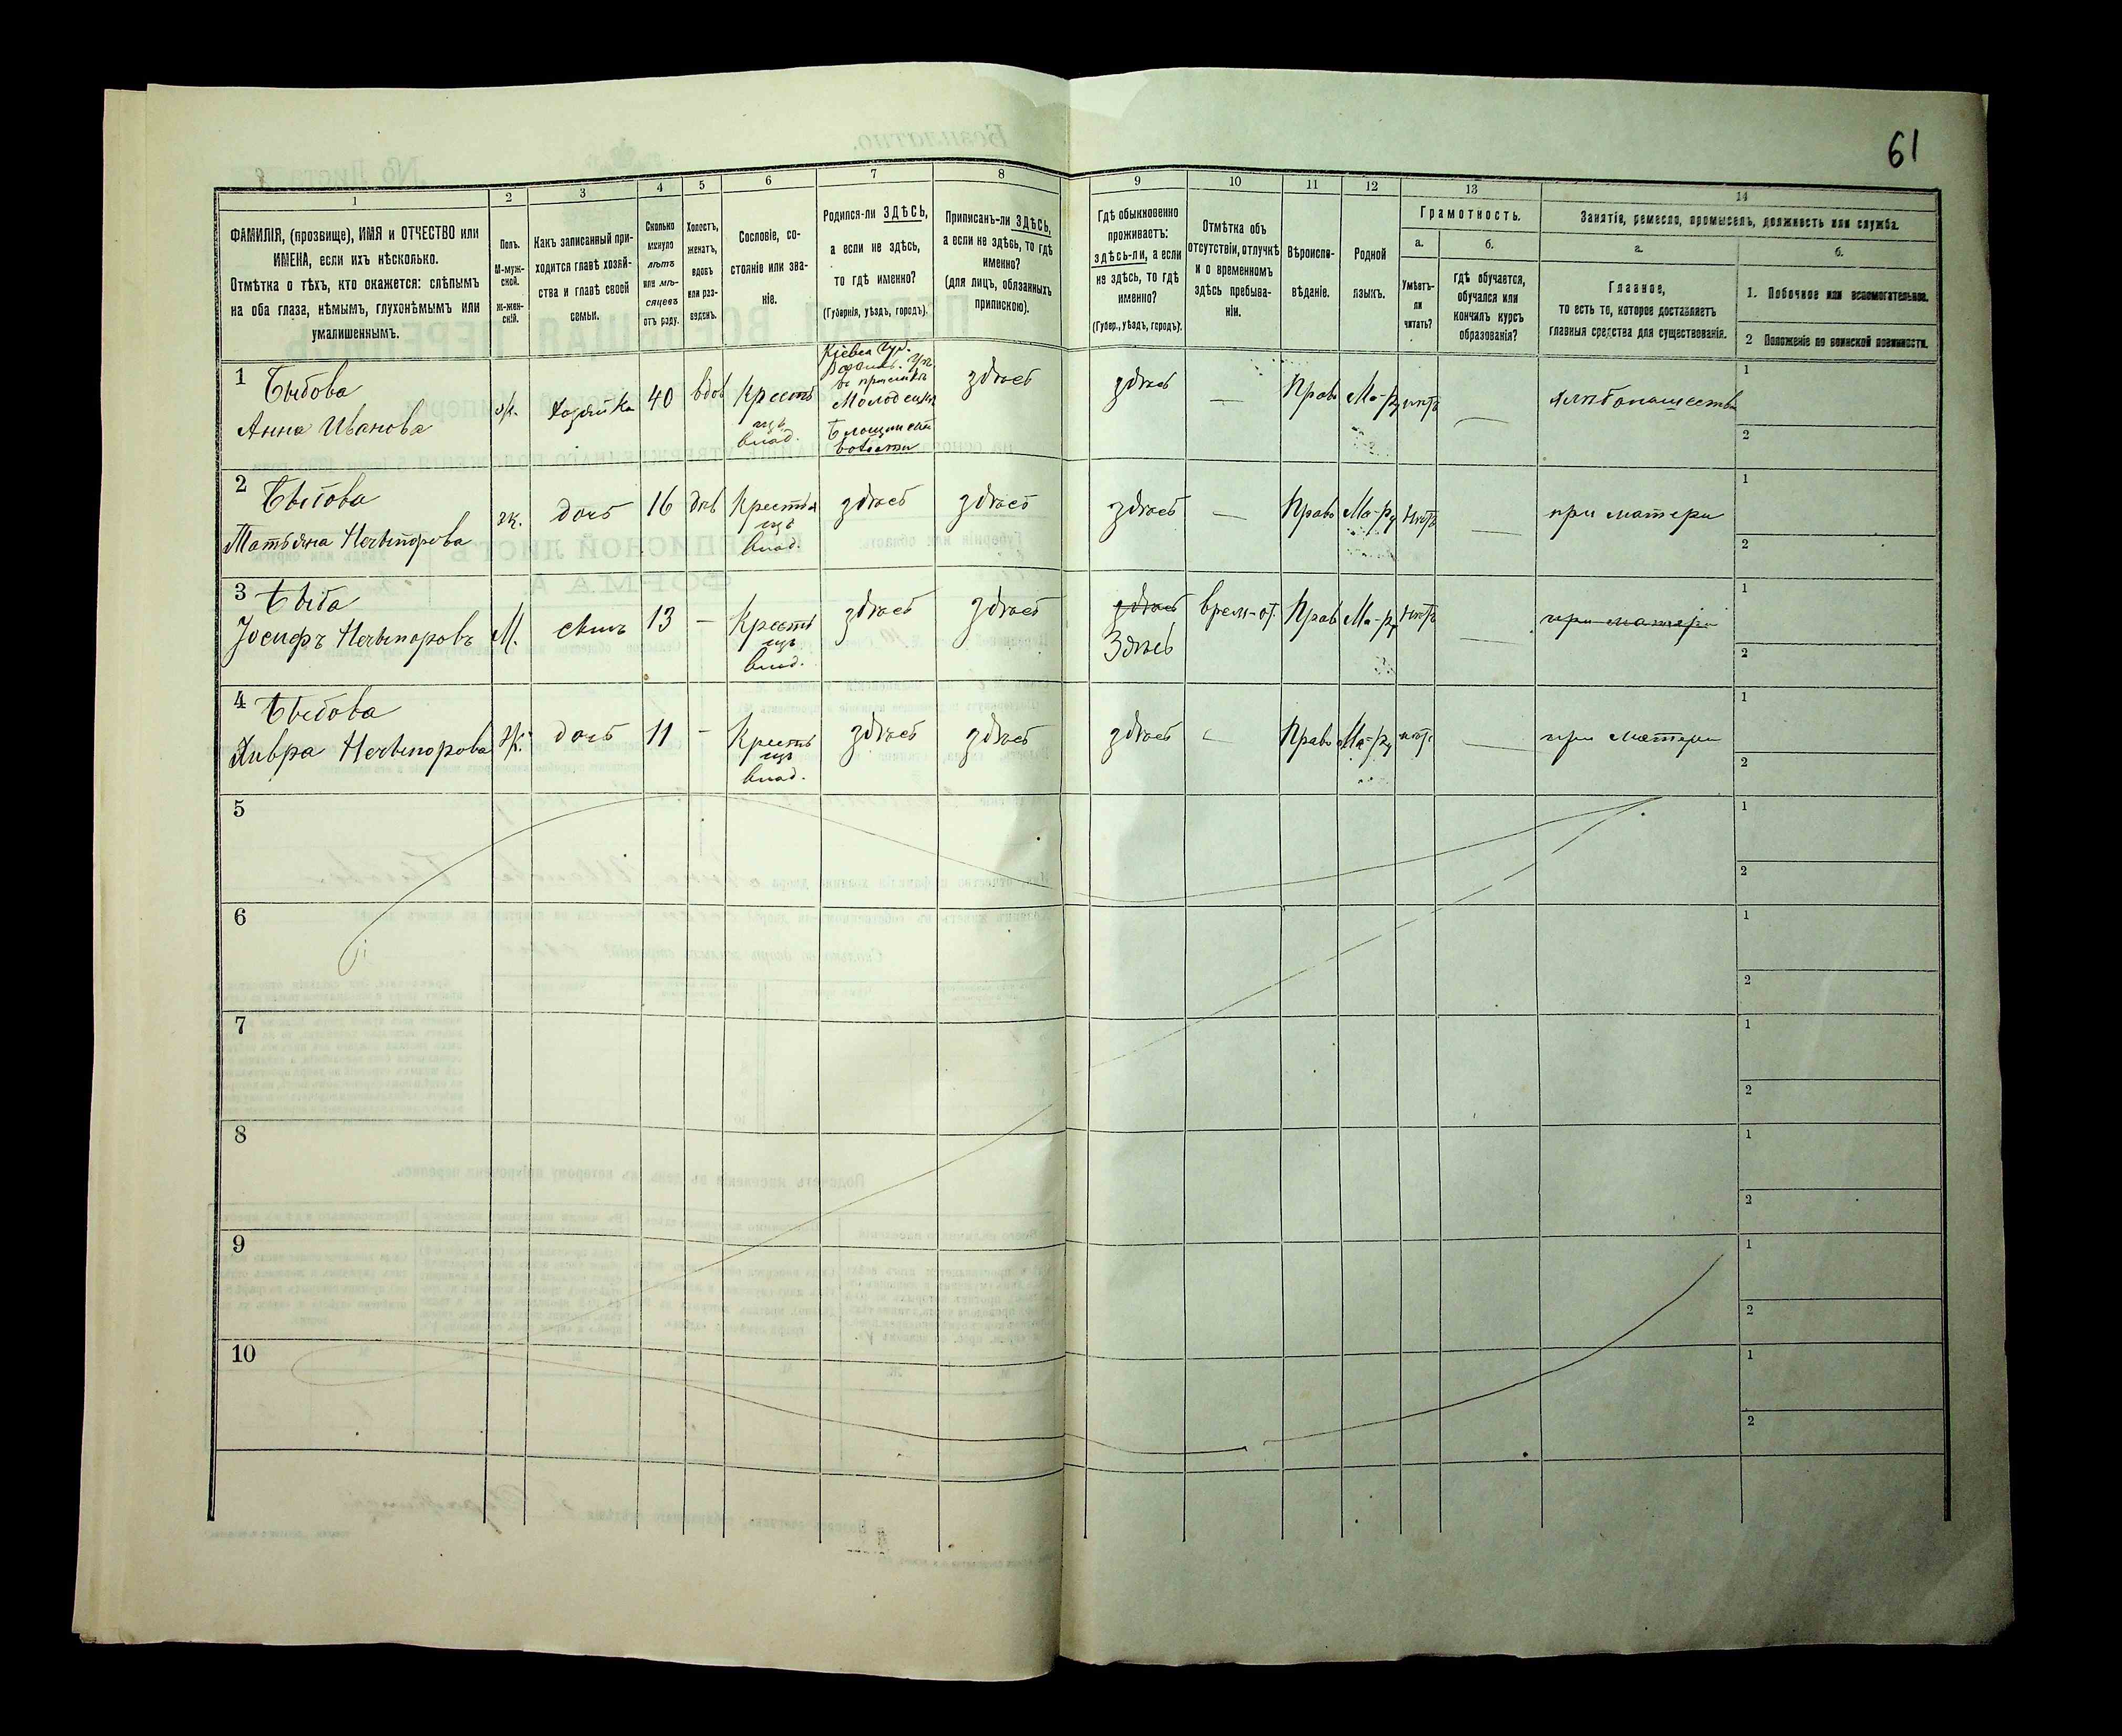 61
1
2
3
4
5
6
7
8
9
10
11
12
13
14
ФАМИЛІЯ, (прозвище), ИМЯ и ОТЧЕСТВО или
ИМЕНА, если ихъ нѣсколько.
Отмѣтка о тѣхъ, кто окажется: слѣпымъ
на оба глаза, нѣмымъ, глухонѣмымъ или
умалишеннымъ.
Полъ.
М-муж-
ской.
Ж-жен-
скій.
Какъ записанный при-
ходится главѣ хозяй-
ства и главѣ своей
семьи.
Сколько
минуло
лѣтъ
или мѣ-
сяцевъ
отъ роду.
Холостъ,
женатъ,
вдовъ
или раз-
веденъ.
Сословіе, со-
стояніе или зва-
ніе.
Родился-ли ЗДѢСЬ,
а если не здѣсь,
то гдѣ именно?
(Губернія, уѣздъ, городъ).
Приписанъ-ли ЗДѢСЬ,
а если не здѣсь, то гдѣ
именно?
(для лицъ, обязанныхъ
припискою).
Гдѣ обыкновенно
проживаетъ:
здѣсь-ли, а если
не здѣсь, то гдѣ
именно?
(Губер., уѣздъ, городъ).
Отмѣтка объ
отсутствіи, отлучкѣ
и о временномъ
здѣсь пребыва-
ніи.
Вѣроиспо-
вѣданіе.
Родной
языкъ.
Грамотность.
а.
Умѣетъ-
ли
читать?
б.
гдѣ обучается,
обучался или
кончилъ курсъ
образованія?
Занятіе, ремесло, промыселъ, должность или служба.
а.
Главное,
то есть то, которое доставляетъ
главныя средства для существованія.
б.
1. Побочное или вспомогательное.
2 Положеніе по воинской повинности.
1
Анна Иванова
ж.
хозяйка
40
вдов
Крестъ
влад.
Кіевск Губ.
волости
здѣсь
здѣсь
—
Прав
Ма-ру
нѣтъ
—
1
2
2
Татьяна Нечыпорова
ж.
дочь
16
дѣв
Крестья
влад.
здѣсь
здѣсь
здѣсь
—
Прав
Ма-ру
нѣтъ
—
при матери
1
2
3
Іосифъ Нечыпоровъ
М.
сынъ
13
—
Крестъ
влад.
здѣсь
здѣсь
здѣсь
Здѣсь
врем-от.
Прав
Ма-ру
нѣтъ
—
при матери
1
2
4
Хивра Нечыпорова
ж.
дочь
11
—
Крестъ
влад.
здѣсь
здѣсь
здѣсь
—
Прав
Ма-ру
нѣт.
—
при матери
1
2
5
1
2
6
1
2
7
1
2
8
1
2
9
1
2
10
1
2